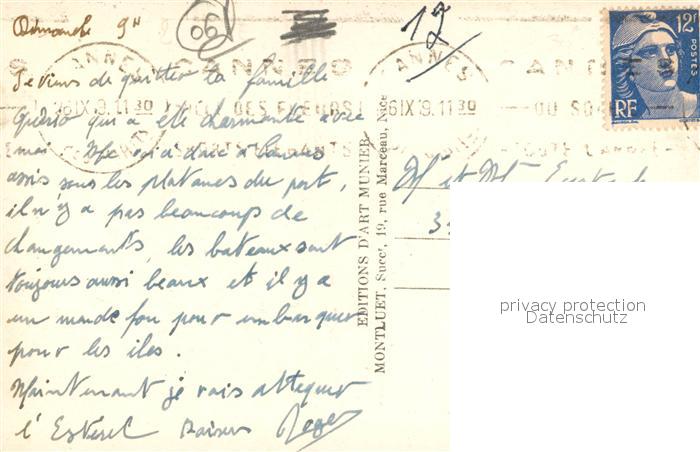 Dimanche 9H
06
12
12F
POSTES
RF
CANNES
CANNES
CANNES
Je viens de quitter la famille
qui a été charmante avec
moi. Me voici donc à Cannes
assis sous les platanes du port,
il n'y a pas beaucoup de
changements, les bateaux sont
toujours aussi beaux et il y a
un monde fou pour embarquer
pour les iles.
Maintenant je vais attaquer
l'Esterel Baisers Roger
EDITIONS D'ART MUNIER
MONTLUET, Succr, 19, rue Marceau, Nice
M et Me
privacy protection
Datenschutz